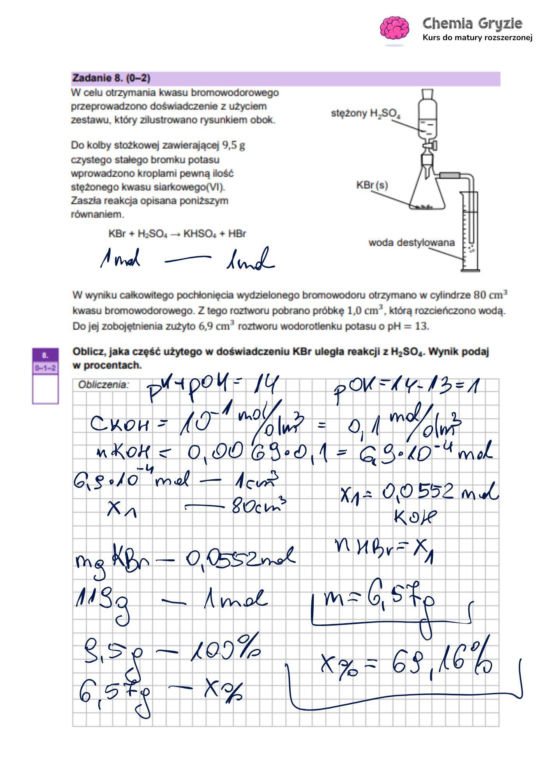 Chemia Gryzie
Kurs do matury rozszerzonej
Zadanie 8. (0–2)
W celu otrzymania kwasu bromowodorowego
przeprowadzono doświadczenie z użyciem
zestawu, który zilustrowano rysunkiem obok.
stężony H₂SO₄
Do kolby stożkowej zawierającej 9,5 g
czystego stałego bromku potasu
wprowadzono kroplami pewną ilość
stężonego kwasu siarkowego(VI).
Zaszła reakcja opisana poniższym
równaniem.
KBr (s)
KBr + H₂SO₄ → KHSO₄ + HBr
woda destylowana
1 mol — 1mol
W wyniku całkowitego pochłonięcia wydzielonego bromowodoru otrzymano w cylindrze 80 cm³
kwasu bromowodorowego. Z tego roztworu pobrano próbkę 1,0 cm³, którą rozcieńczono wodą.
Do jej zobojętnienia zużyto 6,9 cm³ roztworu wodorotlenku potasu o pH = 13.
8.
0–1–2
Oblicz, jaka część użytego w doświadczeniu KBr uległa reakcji z H₂SO₄. Wynik podaj
w procentach.
Obliczenia: pH+pOH = 14 pOH = 14-13 = 1
CKOH = 10⁻¹ mol/dm³ = 0,1 mol/dm³
nKOH = 0,0069·0,1 = 6,9·10⁻⁴ mol
6,9·10⁻⁴ mol — 1cm³
x1 — 80cm³
x1 = 0,0552 mol
KOH
mg KBr — 0,0552mol
nHBr = x1
119g — 1mol
m = 6,57g
9,5g — 100%
6,57g — x%
x% = 69,16%